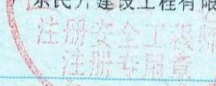 东民升建设工程有限
注册安全工程师
注册专用章